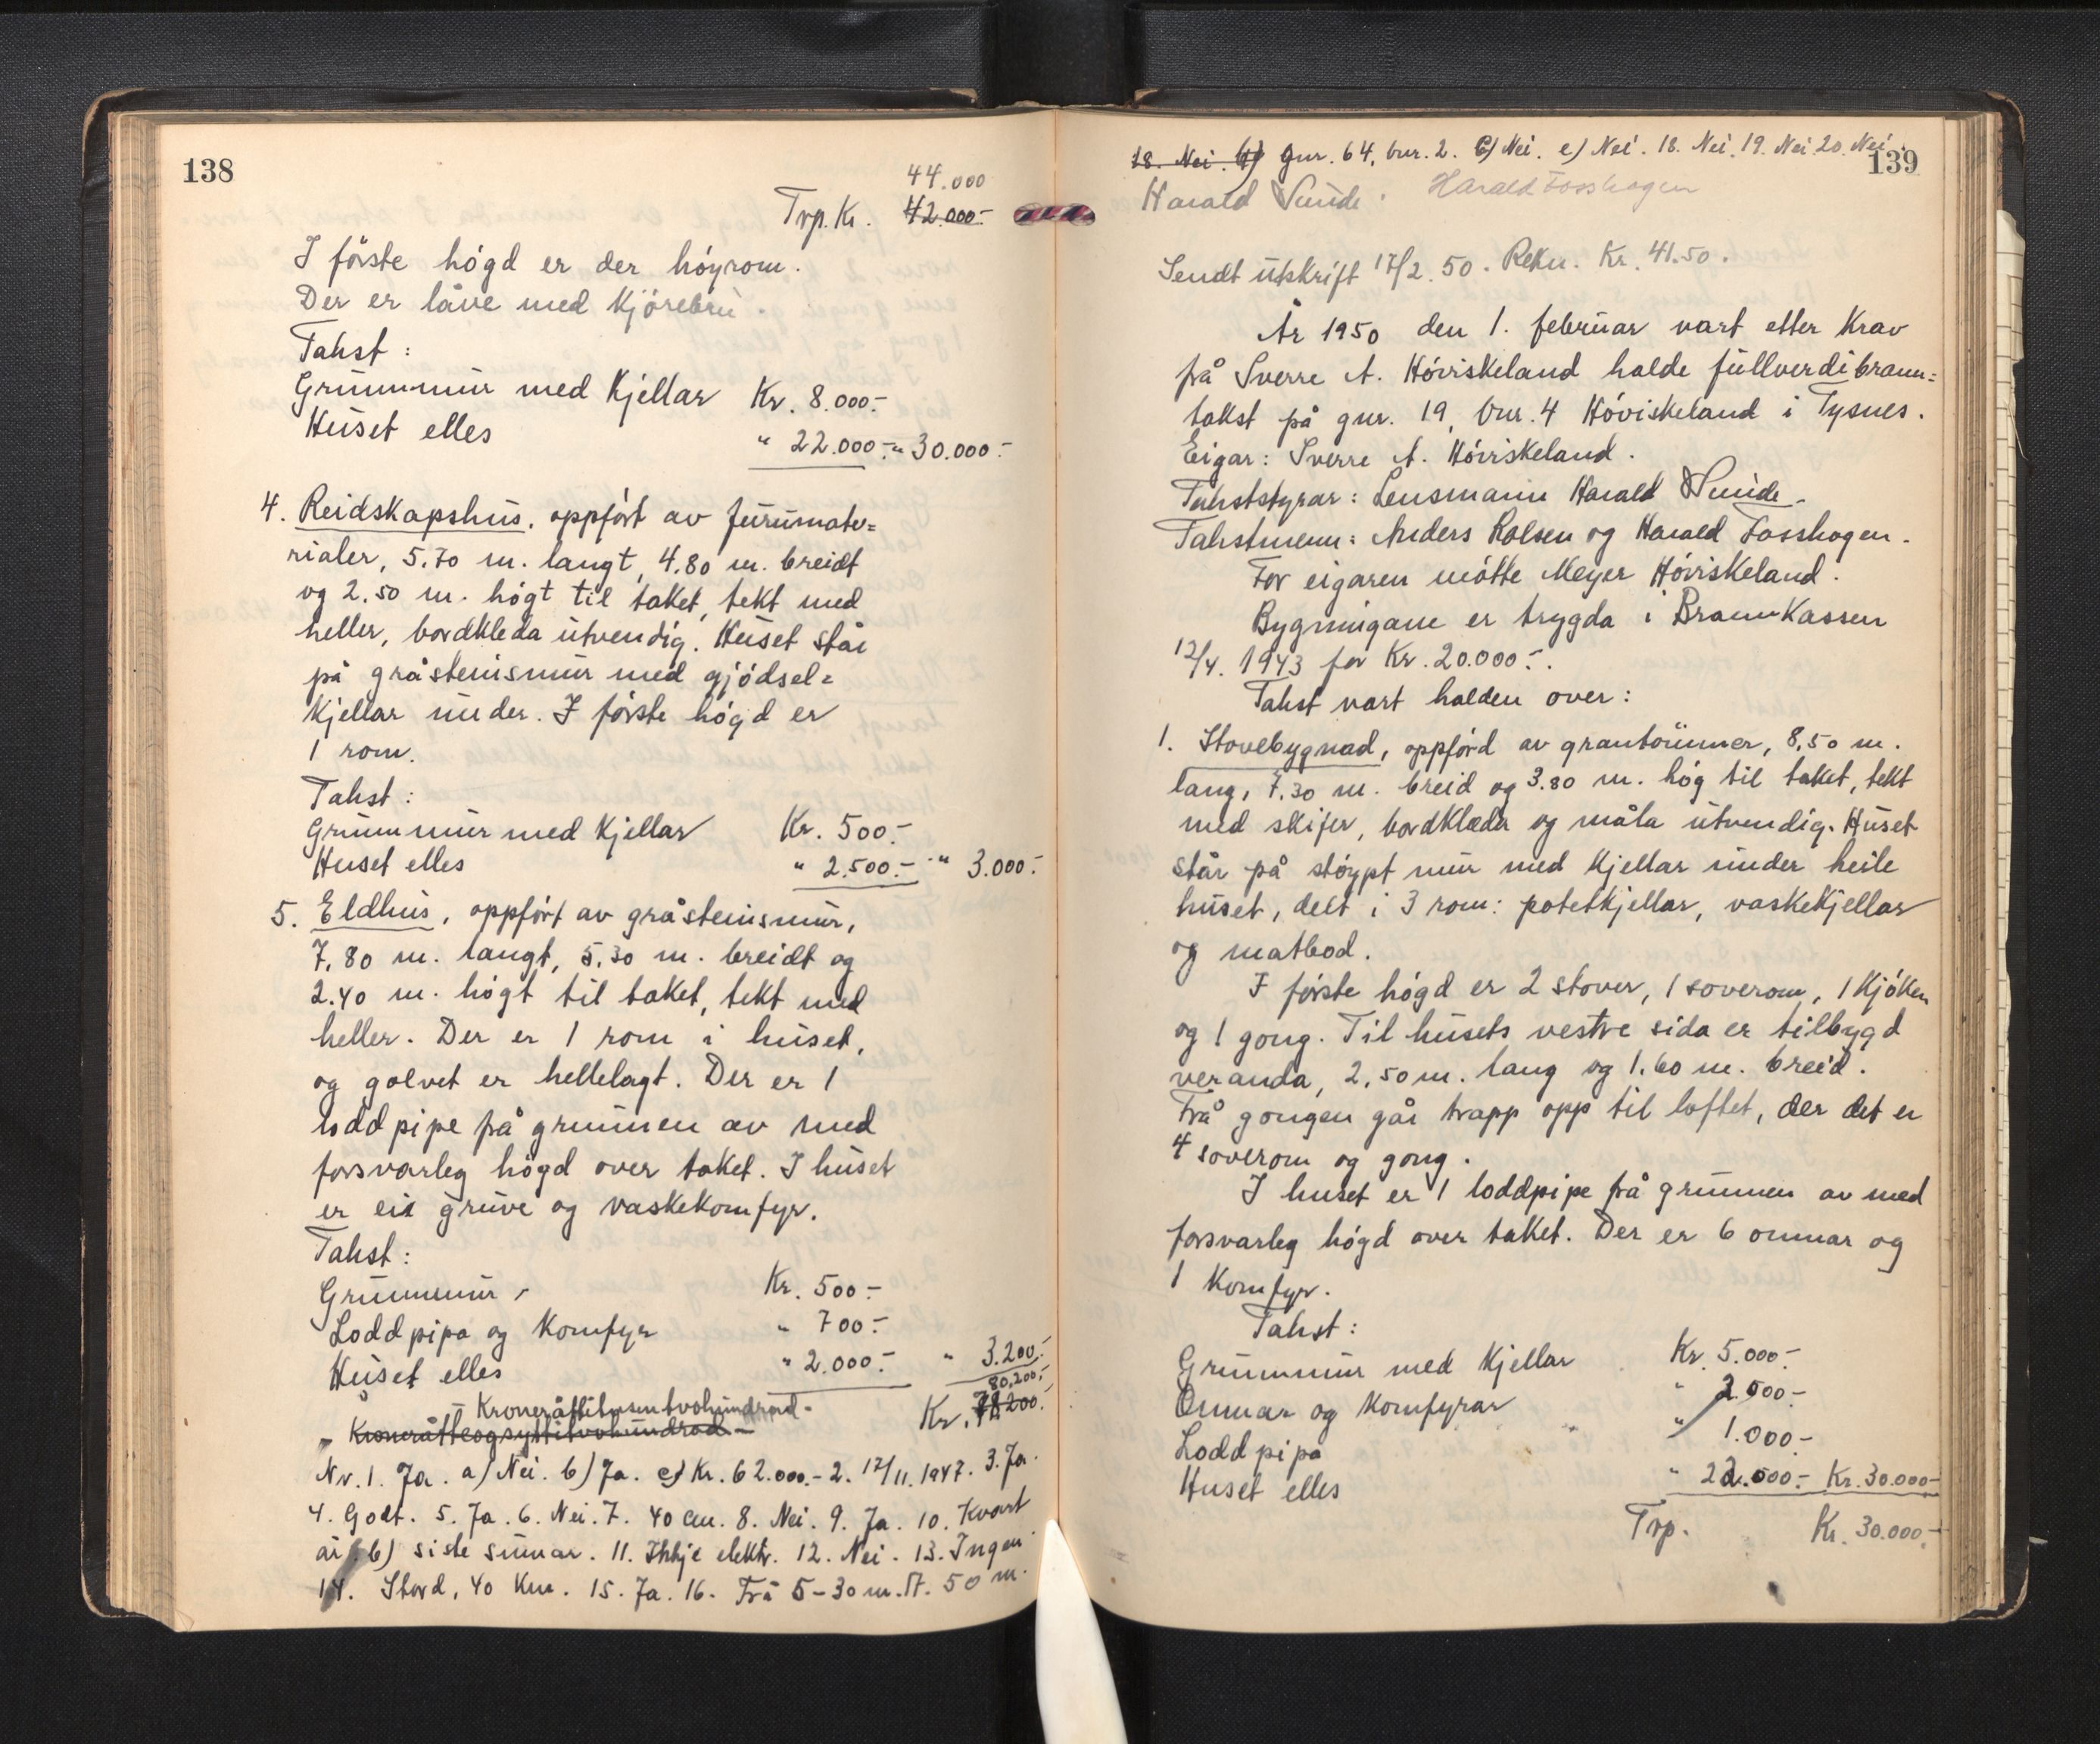 138
44.000
Trp. Kr. 42.000.-
I fôrste hôgd er der hôyrom.
Der er låve med kjôrebru.
Takst:
Grunnmur med kjellar Kr. 8.000.-
Huset elles " 22.000.- " 30.000.-
4. Reidskapshus, oppfôrt av furumate=
rialer, 5.70 m. langt, 4.80 m. breidt
og 2.50 m. hôgt til taket, tekt med
heller, bordkleda utvendig. Huset står
på gråsteinsmur med gjôdsel=
kjellar under. I fôrste hôgd er
1 rom.
Takst:
Grunnmur med kjellar Kr. 500.-
Huset elles " 2.500.- " 3.000.-
5. Eldhus, oppfôrt av gråsteinsmur,
7.80 m. langt, 5.30 m. breidt og
2.40 m. hôgt til taket, tekt med
heller. Der er 1 rom i huset,
og golvet er hellelagt. Der er 1
loddpipe frå grunnen av med
forsvarleg hôgd over taket. I huset
er ei gruve og vaskekomfyr.
Takst:
Grunnmur, Kr. 500.-
Loddpipa og komfyr " 700.-
Huset elles " 2.000.- " 3.200.-
80.200.-
- Kroneråttitusentvohundrad - Kr. 78.200.-
- Kroneråtteogsyttitvohundrad -
Nr. 1. Ja. a) Nei. b) Ja. c) Kr. 62.000.- 2. 12/11. 1947. 3. Ja.
4. Godt. 5. Ja. 6. Nei. 7. 40 cm. 8. Nei. 9. Ja. 10. Kvart
år. b) siste sumar. 11. Ikkje elektr. 12. Nei. 13. Ingen
14. Stord, 40 km. 15. Ja. 16. Frå 5-30 m. 17. 50 m.
139
18. Nei. b) gnr. 64, bnr. 2. c) Nei. e) Nei. 18. Nei. 19. Nei 20. Nei.
Harald Sunde. Harald Fosshagen
Sendt utskrift 17/2. 50. Rekn. Kr. 41.50.
År 1950 den 1. februar vart etter krav
frå Sverre A. Hôviskeland halde fullverdibrann=
takst på gnr. 19, bnr. 4 Hôviskeland i Tysnes.
Eigar: Sverre A. Hôviskeland.
Takststyrar: Lensmann Harald Sunde.
Takstmenn: Anders Rolsen og Harald Fosshagen.
For eigaren môtte Meyer Hôviskeland.
Bygningane er trygda i Brannkassen
12/4. 1943 for Kr. 20.000.-.
Takst vart halden over:
1. Stovebygnad, oppfôrd av grantômmer, 8.50 m.
lang, 7.30 m. breid og 3.80 m. hôg til taket, tekt
med skifer, bordklædd og måla utvendig. Huset
står på stôypt mur med kjellar under heile
huset, delt i 3 rom: potetkjellar, vaskekjellar
og matbod.
I fôrste hôgd er 2 stover, 1 soverom, 1 kjôken
og 1 gong. Til husets vestre sida er tilbygd
veranda, 2.50 m. lang og 1.60 m. breid.
Frå gongen går trapp opp til loftet, der det er
4 soverom og gong.
I huset er 1 loddpipe frå grunnen av med
forsvarleg hôgd over taket. Der er 6 omnar og
1 komfyr.
Takst:
Grunnmur med kjellar Kr. 5.000.-
Omnar og komfyrar " 2.000.-
Loddpipa " 1.000.-
Huset elles " 22.000.- Kr. 30.000.-
Trp. Kr. 30.000.-